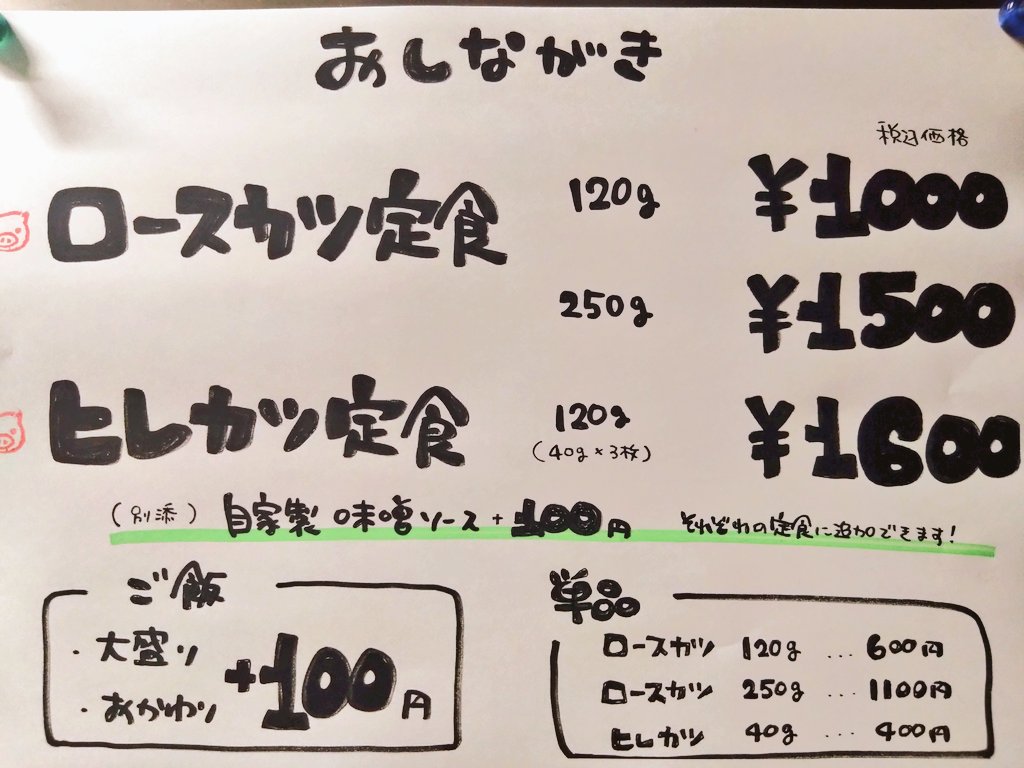 おしながき
税込価格
ロースカツ定食 120g ¥1000
250g ¥1500
ヒレカツ定食 120g ¥1600
(40g×3枚)
(別添) 自家製 味噌ソース +100円 それぞれの定食に追加できます!
ご飯
・大盛り
・おかわり
+100円
単品
ロースカツ 120g … 600円
ロースカツ 250g … 1100円
ヒレカツ 40g … 400円